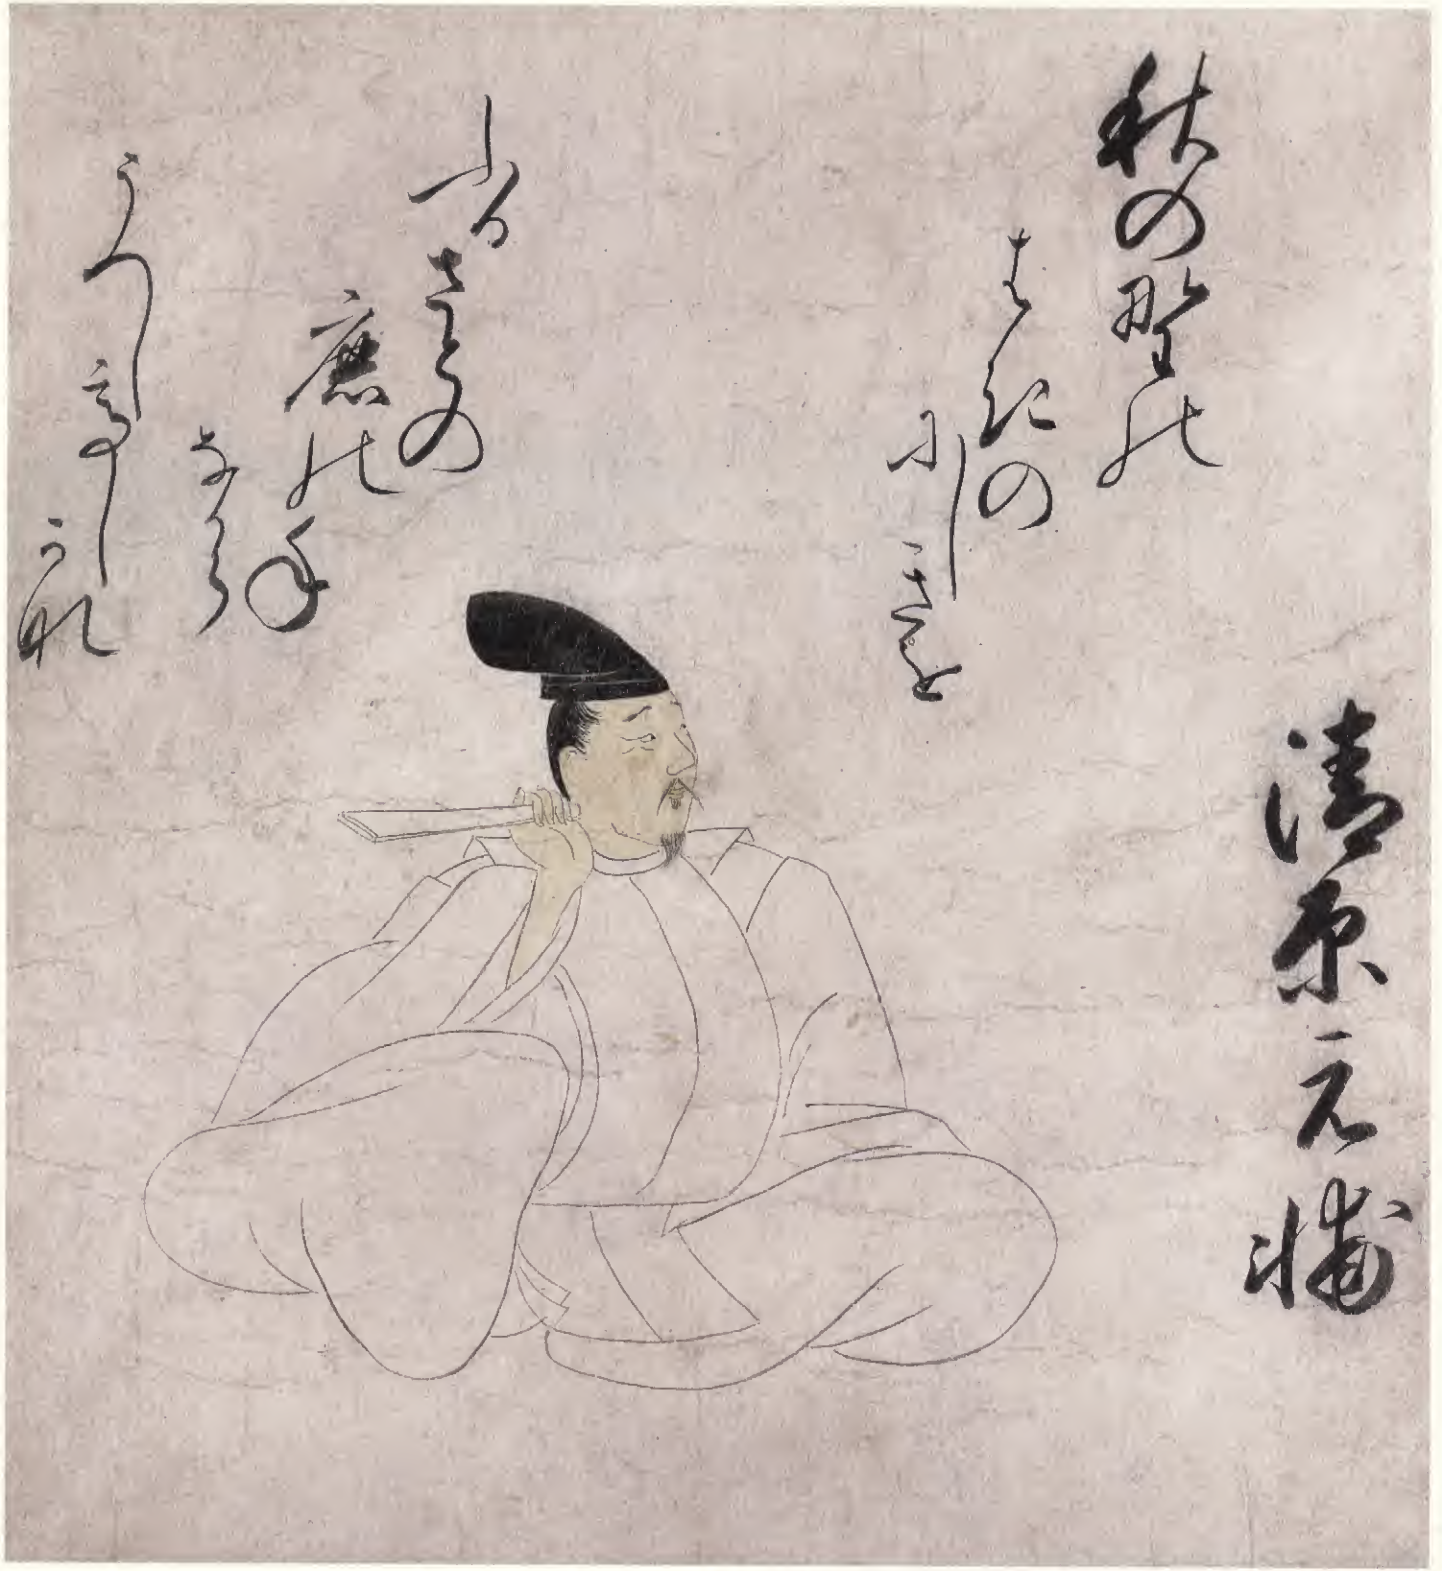 清原元輔
秋の野の
はきの
にしきを
ふるさとの
鹿のね
なから
うつしてし
かな